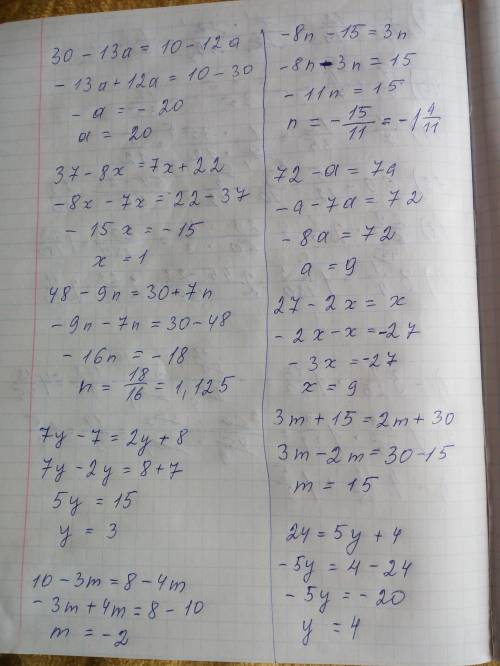 30 - 13a = 10 - 12a
- 13a + 12a = 10 - 30
- a = - 20
a = 20
37 - 8x = 7x + 22
- 8x - 7x = 22 - 37
- 15x = - 15
x = 1
48 - 9n = 30 + 7n
- 9n - 7n = 30 - 48
- 16n = - 18
n = 18/16 = 1,125
7y - 7 = 2y + 8
7y - 2y = 8 + 7
5y = 15
y = 3
10 - 3m = 8 - 4m
- 3m + 4m = 8 - 10
m = - 2
- 8n - 15 = 3n
- 8n - 3n = 15
- 11n = 15
n = - 15/11 = - 1 4/11
72 - a = 7a
- a - 7a = 72
- 8a = 72
a = 9
27 - 2x = x
- 2x - x = - 27
- 3x = - 27
x = 9
3m + 15 = 2m + 30
3m - 2m = 30 - 15
m = 15
24 = 5y + 4
- 5y = 4 - 24
- 5y = - 20
y = 4